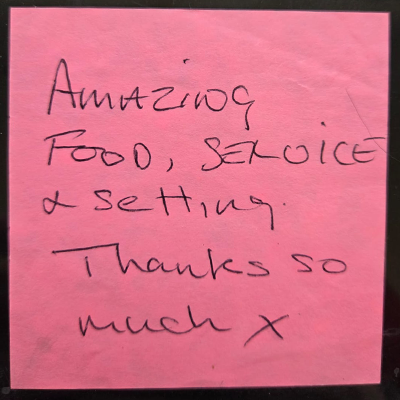 Amazing
Food, Service
& setting.
Thanks so
much x